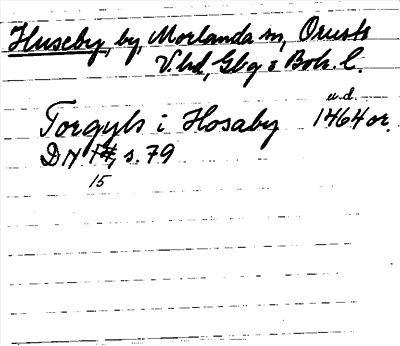 Huseby, by, Morlanda sn, Orusts
V. hd, Gbg o Boh. l.
u.d.
Torgyls i Hosaby 1464 or.
DN s. 79
15